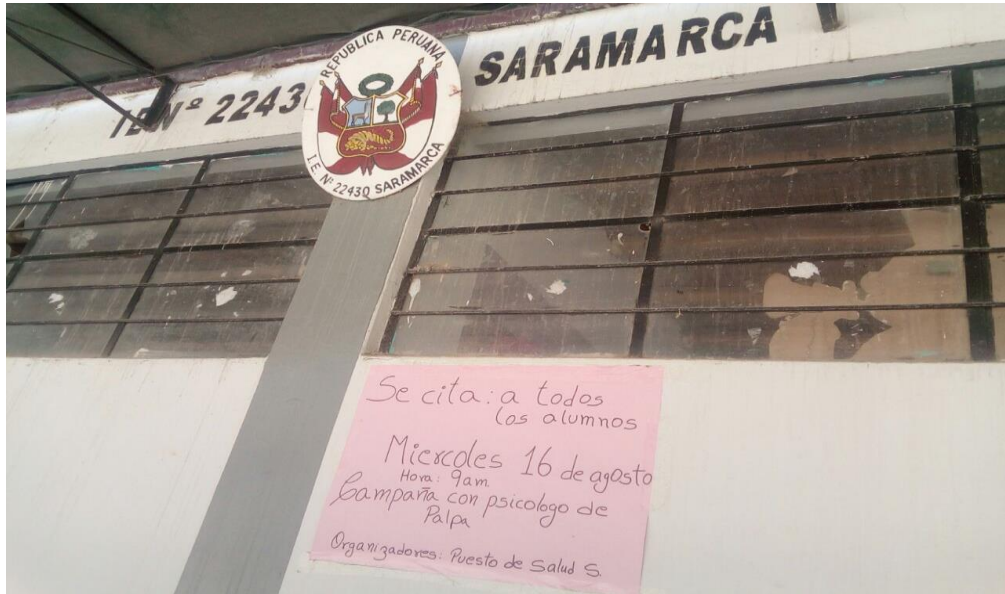 IE Nº 22430 SARAMARCA
REPUBLICA PERUANA
I.E. Nº 22430 SARAMARCA
Se cita: a todos
los alumnos
Miercoles 16 de agosto
Hora: 9am
Campaña con psicologo de
Palpa
Organizadores: Puesto de Salud S.